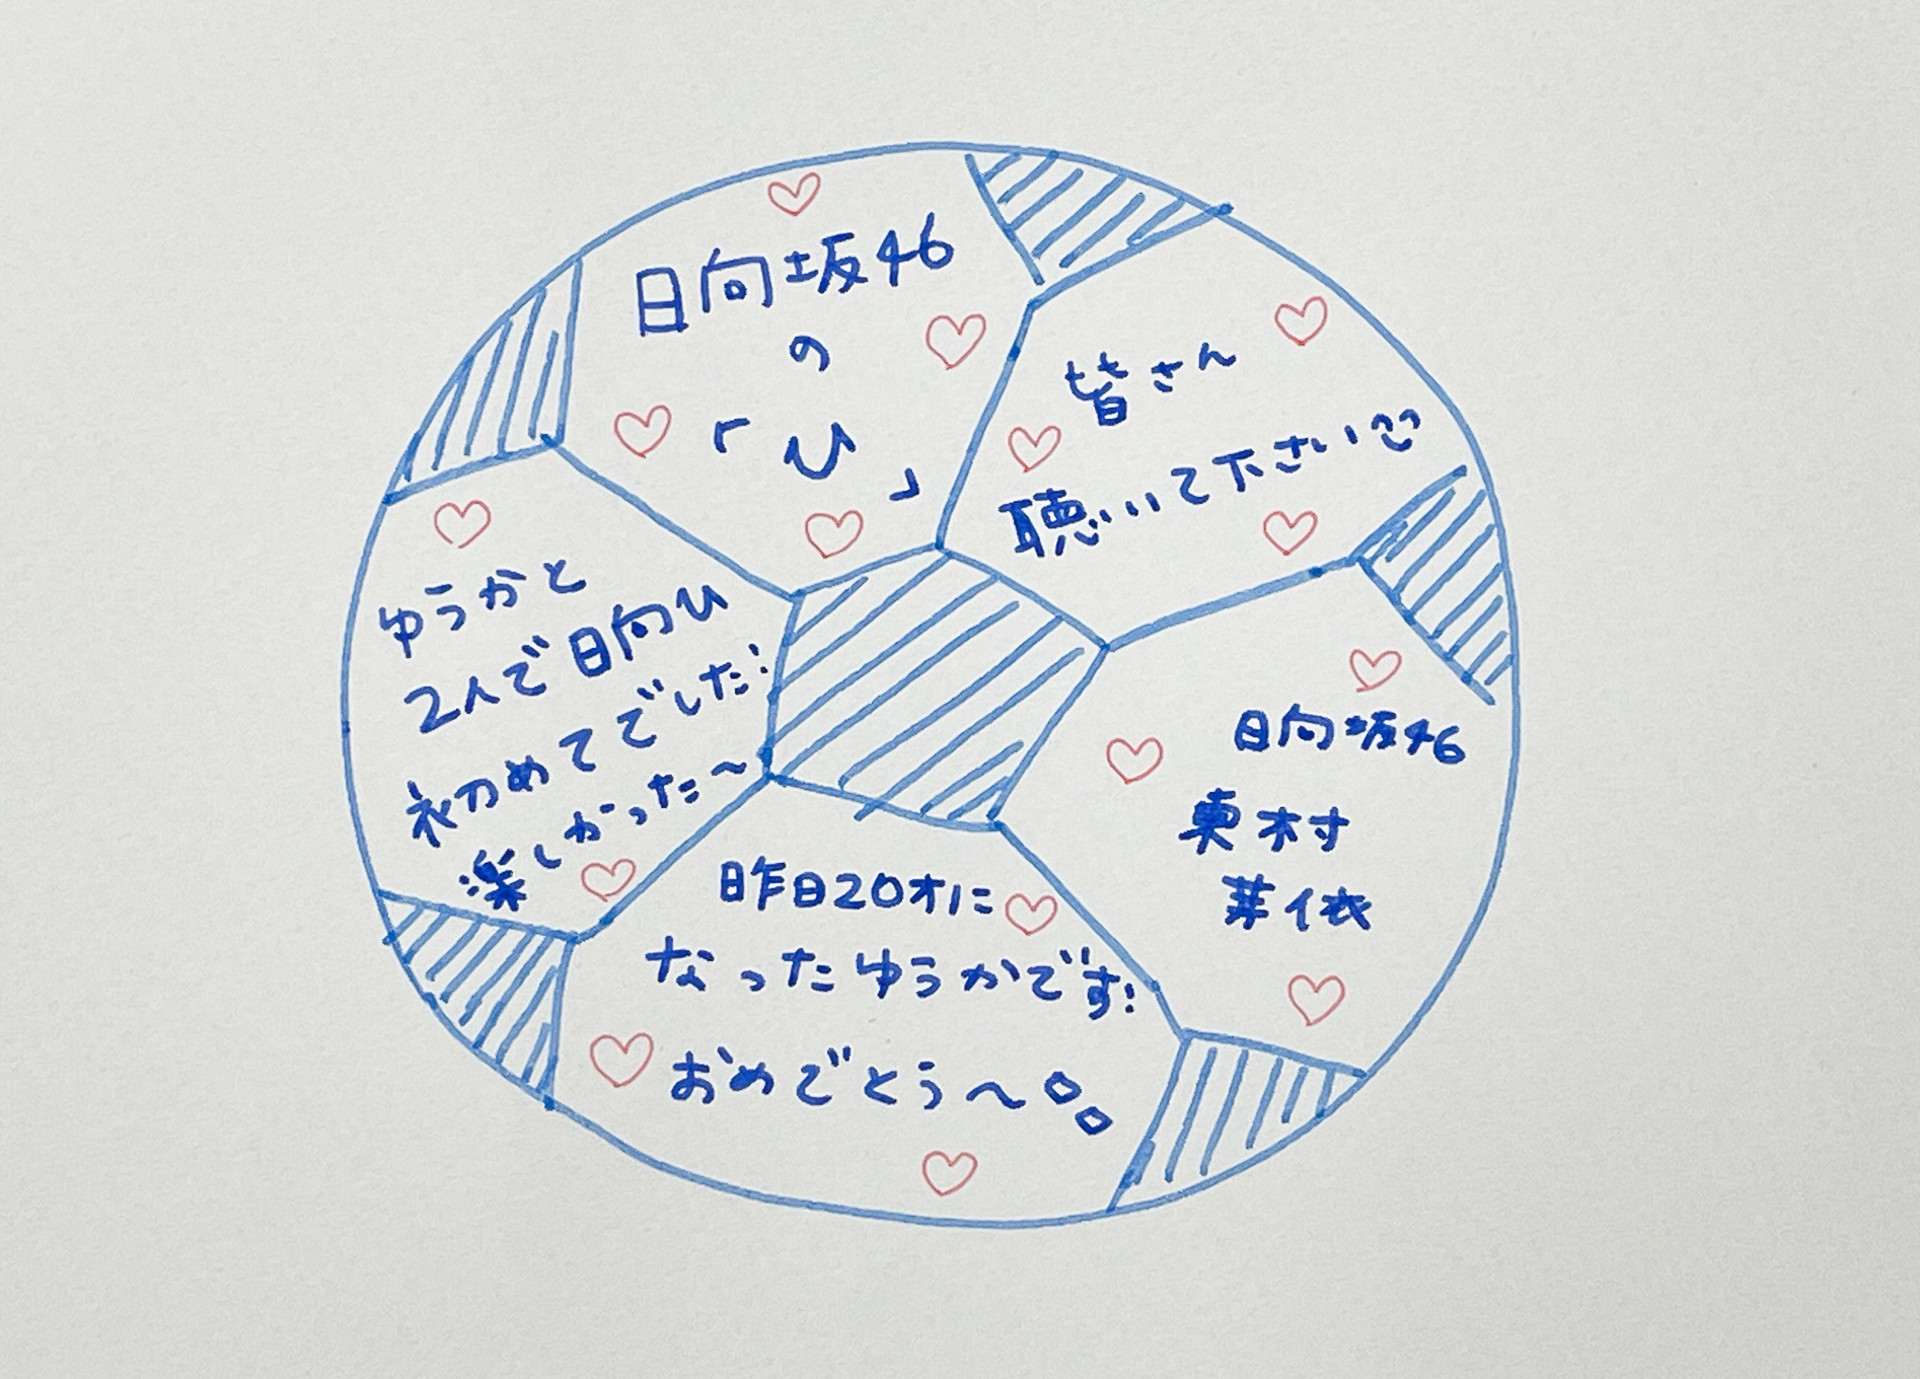 日向坂46
の
「ひ」
皆さん
聴いて下さい
ゆうかと
2人で日向ひ
初めてでした!
楽しかった〜
昨日20才に
なったゆうかです!
おめでとう〜
日向坂46
東村
芽依